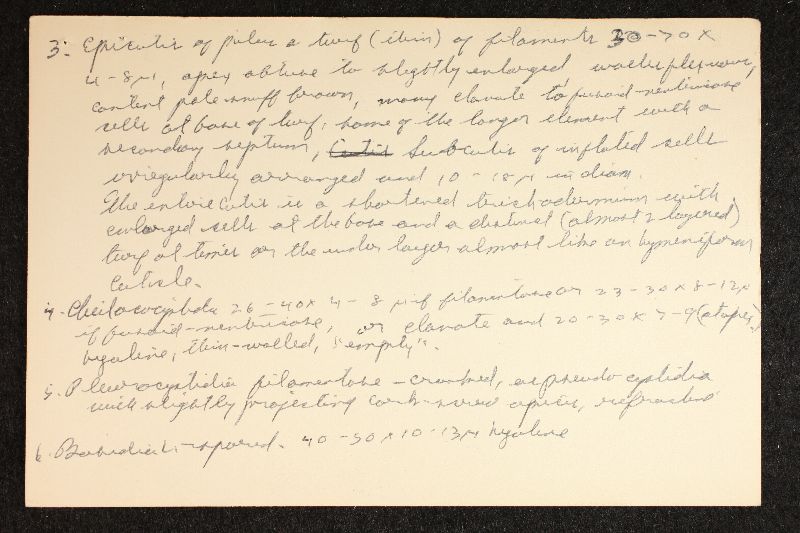 3. Epicutis of pileus a turf (thin) of filaments 30-70 x
4-8 µ, apex obtuse to slightly enlarged, walls
content pale snuff brown, many clavate to fusoid-ventricose
cells at base of turf, some of the longer element with a
secondary septum, Subcutis of inflated cells
irregularly arranged and 10-18 µ in diam.
The entire cutis is a shortened trichodermium with
enlarged cells at the base and a distinct (almost 2 layered)
turf at times or the under layer almost like an hymeniform
cuticle.
4. Cheilocystidia 26-40 x 4-8 µ if filamentose or 23-30 x 8-12 µ
if fusoid-ventricose, or clavate and 20-30 x 7-9 (at apex)
hyaline, thin-walled, "empty".
5. Pleurocystidia filamentose-crooked, as pseudocystidia
with slightly projecting apices, refractive
6. Basidia 4-spored. 40-50 x 10-13 µ hyaline